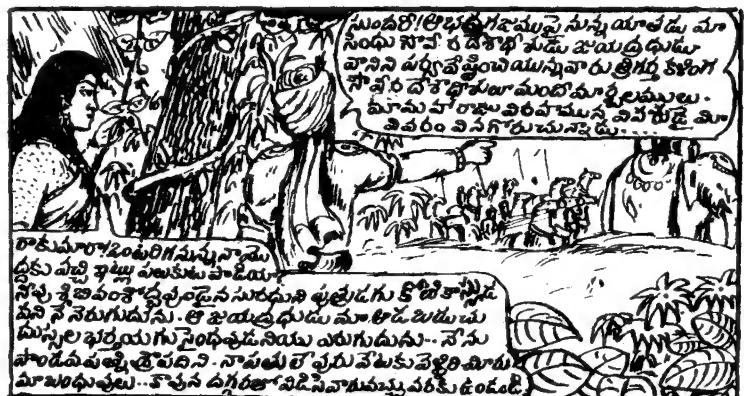 సుందరీ! ఆ భద్రగజముపై నున్న యాతడు మా
సింధు సౌవీర దేశాధీశుడు జయద్రధుడు
వానిని పర్యవేష్టించియున్నవారు త్రిగర్త కళింగ
సౌవీర దేశాధీశులు
మా మహారాజు విరహమున్న
వివరం వినగోరుచున్నాడు....
రాకుమారా! ఒంటరిగనున్న నాకు
ద్దకు వచ్చి ఇట్లు పలుకుట పాడియా?
నీవు శిబివంశోద్భవుండైన సురధుని పుత్రుడగు కోటికాస్యుడ
వని నే నెరుగుదును. ఆ జయద్రధుడు మా ఆడబడుచు
దుస్సల భర్తయగు సైంధవుడనియు ఎరుగుదును.. నేను
పాండవపత్ని ద్రౌపదిని. నాపతులే వురు వేటకు వెళ్ళిరి మీరు
మా బంధువులు.. కావున దగ్గరలో విడిసి వారు వచ్చు వరకు ఉండండి